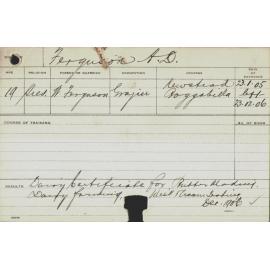 Ferguson A.D.
AGE RELIGION PARENT OR GUARDIAN OCCUPATION ADDRESS DATE OF
19 Pres. W. Ferguson Grazier Newstead 23.1.05
Boggabilla Left
23.12.06
COURSE OF TRAINING
RESULTS Dairy Certificate for Butter Making,
Dairy farming, Milk & Cream Testing
Dec. 1906